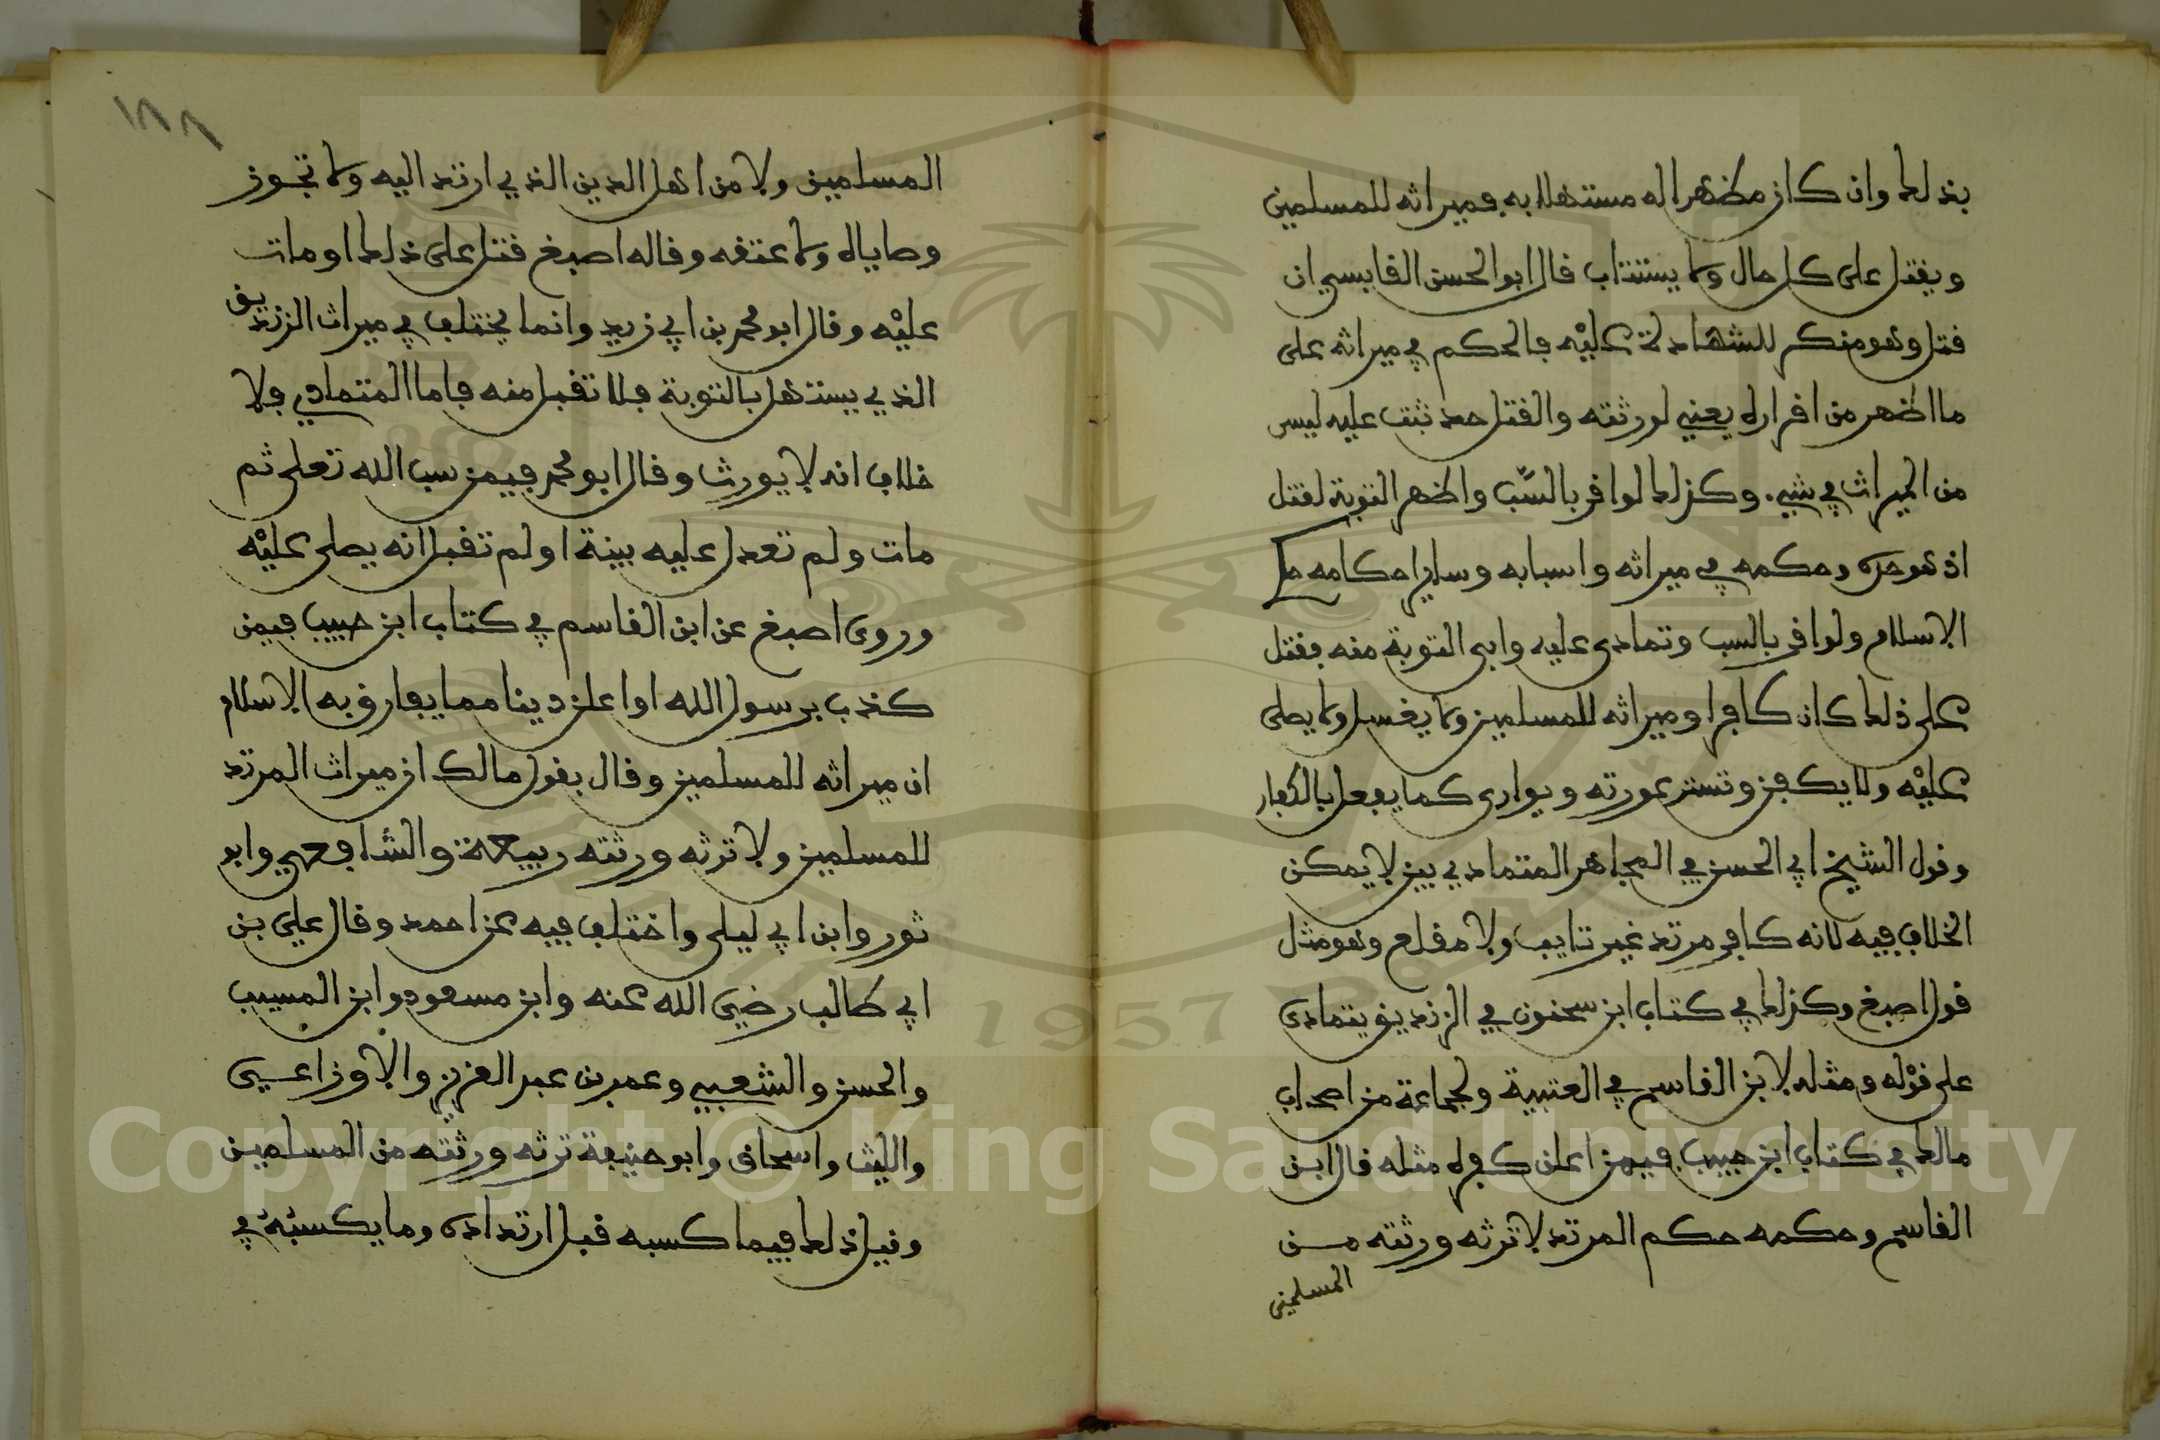 بذلك وان كان مظهرا له مستهلا به فميراثه للمسلمين
ويقتل على كل حال ولا يستتاب قال ابو الحسن القابسي ان
قتل وهو منكر للشهادة عليه فالحكم في ميراثه على
ما اظهر من اقراره يعني لورثته والقتل حد ثبت عليه ليس
من الميراث في شيء وكذلك لو اقر بالسّب واظهر التوبة لقتل
اذ هو حده وحكمه في ميراثه واسبابه وساير احكامه حكم
الاسلام ولو اقر بالسب وتمادى عليه وابى التوبة منه فقتل
على ذلك كان كافرا وميراثه للمسلمين ولا يغسل ولا يصلى
عليه ولا يكفن وتستر عورته ويوارى كما يفعل بالكفار
وقول الشيخ ابي الحسن في المجاهر المتمادي بين لا يمكن
الخلاف فيه لانه كافر مرتد غير تايب ولا مقلع وهو مثل
قول اصبغ وكذلك في كتاب ابن سحنون في الزنديق يتمادى
على قوله ومثله لابن القاسم في العتبية ولجماعة من اصحاب
مالك في كتاب ابن حبيب فيمن اعلن كفره مثله قال ابن
القاسم وحكمه حكم المرتد لا ترثه ورثته من
المسلمين
١٨٨
المسلمين ولا من اهل الدين الذي ارتد اليه ولا تجوز
وصاياه ولا عتقه وقاله اصبغ قتل على ذلك او مات
عليه وقال ابو محمد بن ابي زيد وانما يختلف في ميراث الزنديق
الذي يستهل بالتوبة فلا تقبل منه فاما المتمادي فلا
خلاف انه لا يورث وقال ابو محمد فيمن سب الله تعلى ثم
مات ولم تعدل عليه بينة او لم تقبل انه يصلى عليه
وروى اصبغ عن ابن القاسم في كتاب ابن حبيب فيمن
كذب برسول الله او اعلن دينا مما يفارق به الاسلام
ان ميراثه للمسلمين وقال بقول مالك ان ميراث المرتد
للمسلمين ولا ترثه ورثته ربيعة والشافعي وابو
ثور وابن ابي ليلى واختلف فيه عن احمد وقال علي بن
ابي طالب رضي الله عنه وابن مسعود وابن المسيب
والحسن والشعبي وعمر بن عبد العزيز والاوزاعي
والليث واسحاق وابو حنيفة ترثه ورثته من المسلمين
وقيل ذلك فيما كسبه قبل ارتداده وما يكسبه في
1957
Copyright © King Saud University